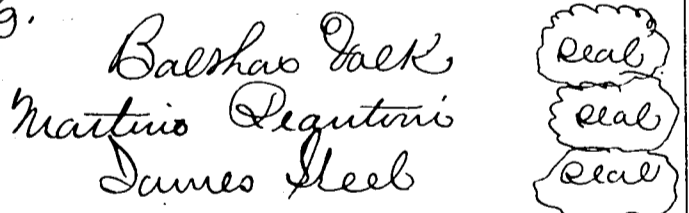 9.
Balshas Valk Seal
Martino Pegutoni Seal
James Steel Seal